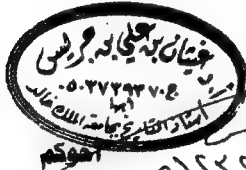 أ.د غيثان بن علي بن جريس
ج ٠٥٠٣٧٣٩٣٧٠
أبها
أستاذ التاريخ بجامعة الملك خالد
أخوكم